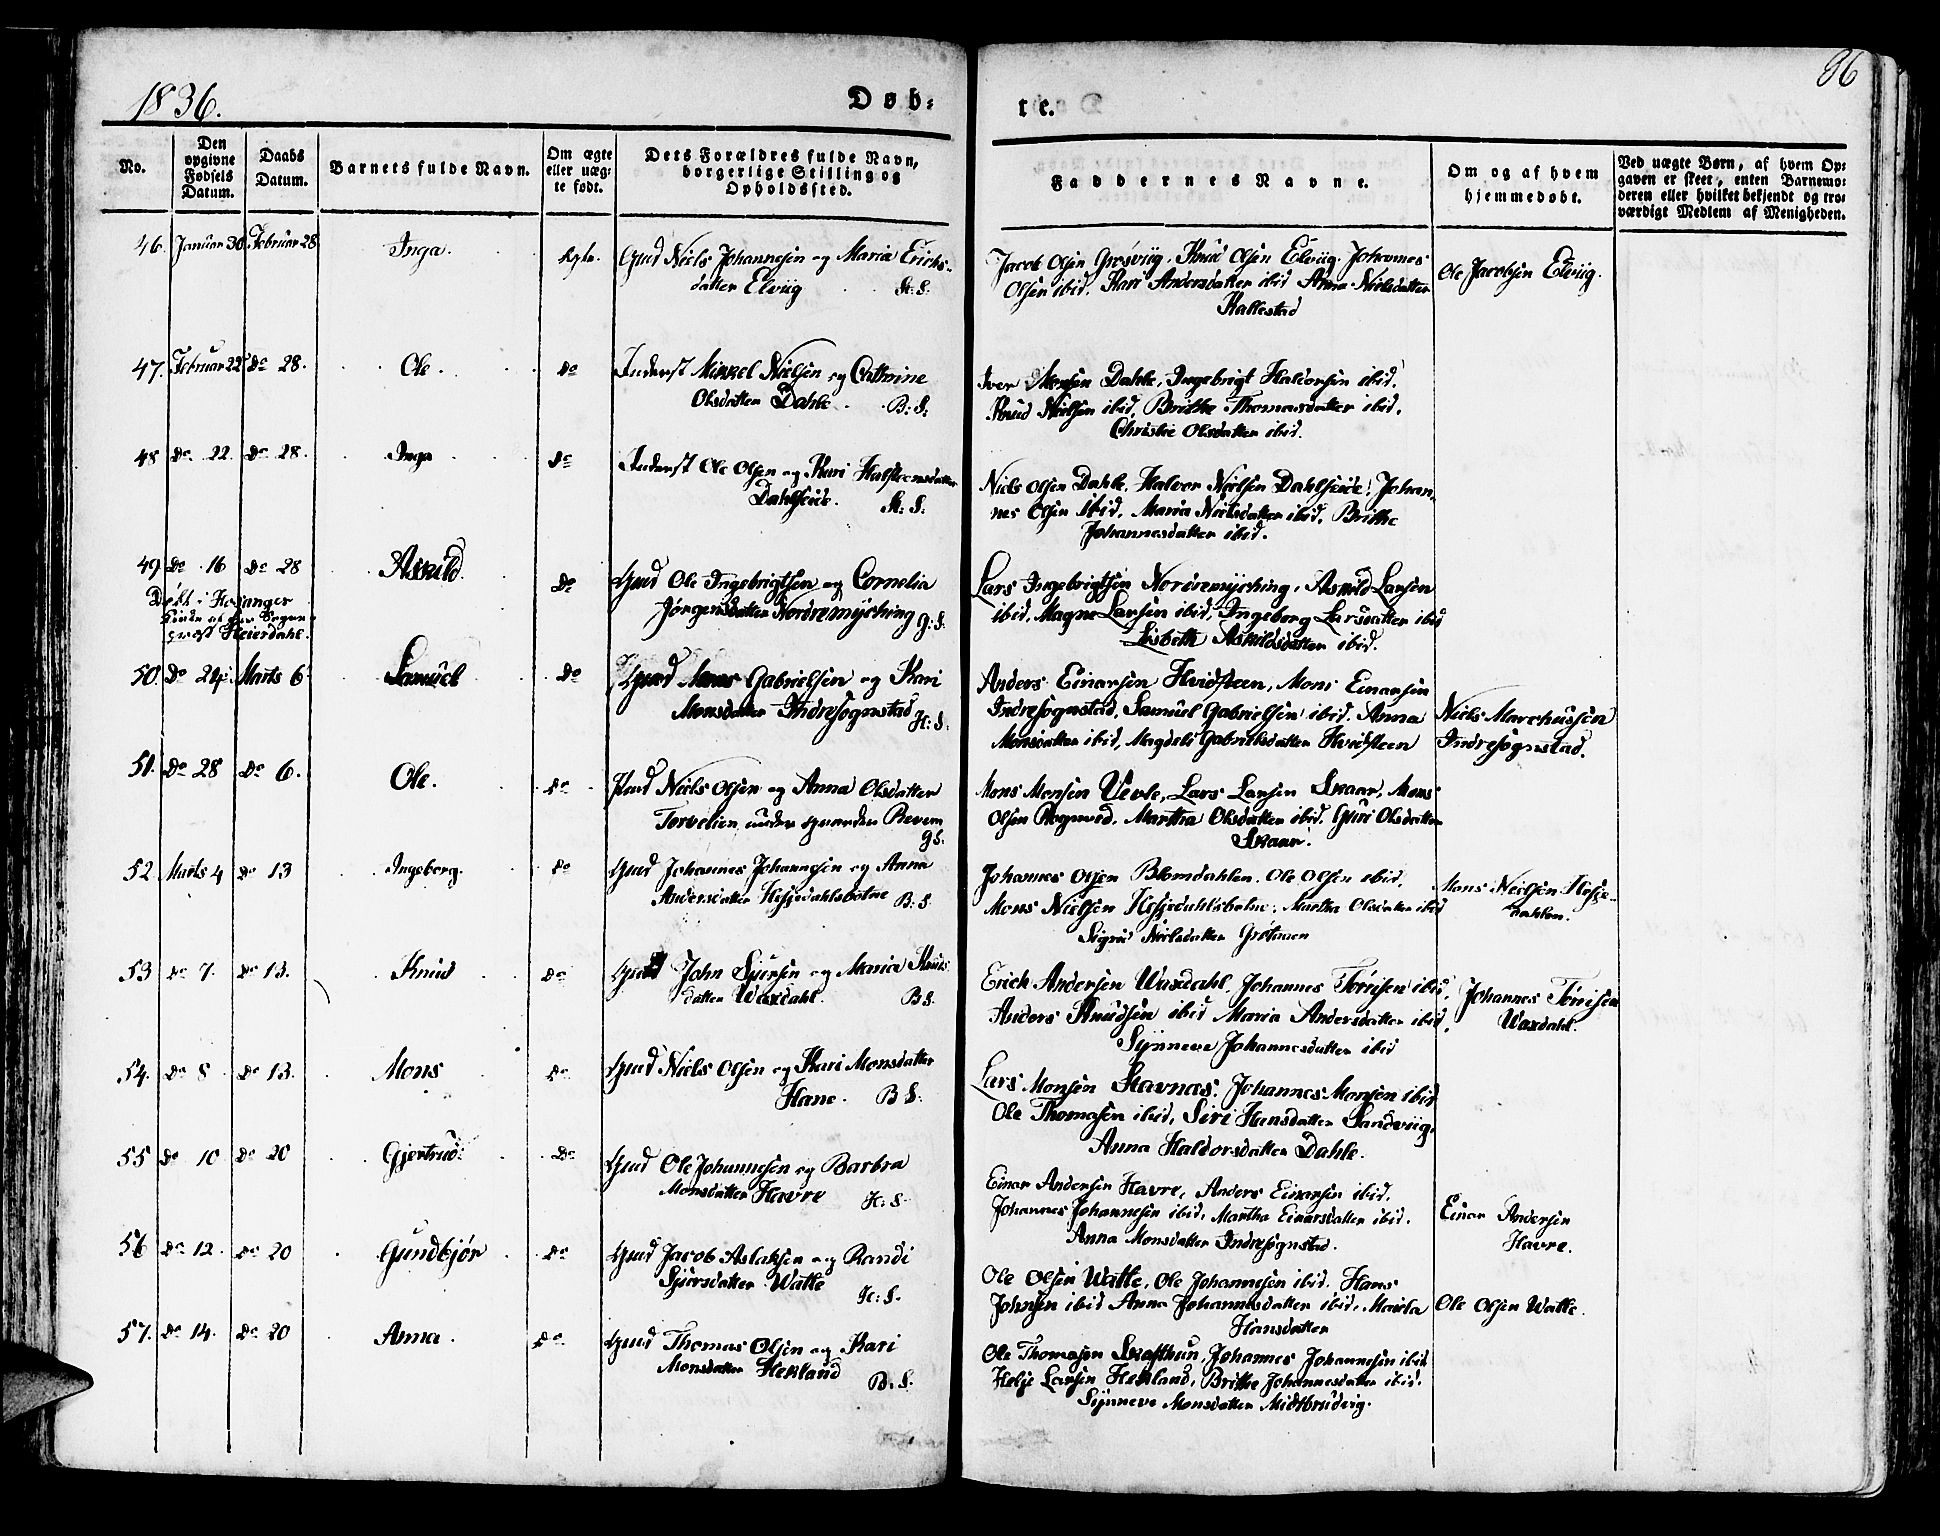 1836.
Døb:
te.
86
No.
Den opgivne Fødsels Datum.
Daabs Datum.
Barnets fulde Navn.
Om ægte eller uæg- te født.
Dets Forældres fulde Navn, borgerlige Stilling og Opholdssted.
Faddernes Navne.
Om og af hvem hjemmedøbt.
Ved uægte Børn, af hvem Op- gaven er skeet, enten Barnemo- deren eller hvilket bekjendt og tro- værdigt Medlem af Menigheden.
46. Januar 30 Februar 28 Inga. Ægte. Gmd Niels Johannesen og Maria Erichs-
datter Elviig H: S:
Jacob Olsen Grøsviig. Knud Olsen Elviig. Johannes
Olsen ibid. Kari Andersdatter ibid Anna Nielsdatter
Kallestad
Ole Jacobsen Elviig.
47. Februar 22 Do 28. Ole. Do Inderst Mikkel Nielsen og Cathrine
Olsdatter Dahle. B: S:
Iver Monsen Dahle, Ingebrigt Haldorsen ibid.
Knud Nielsen ibid, Brithe Thomasdatter ibid.
Christie Olsdatter ibid.
48 Do 22. Do 28. Inga Do Inderst Ole Olsen og Kari Halsteensdatter
Dahlseide. H: S:
Niels Olsen Dahle. Halvor Nielsen Dahlseide, Johan-
nes Olsen ibid, Maria Nielsdatter ibid, Brithe
Johannesdatter ibid.
49 Do 16 Do 28 Askild. Do Gmd Ole Ingebrigtsen og Cornelia
Jørgensdatter Nordremyching G: S:
Døbt i Hosanger
Kirke af Hr Sogne-
præst Heierdahl.
Lars Ingebrigtsen Nordremyching, Askild Larsen
ibid, Magne Larsen ibid, Ingeborg Larsdatter ibid
Lisbeth Askildsdatter ibid.
50. Do 24. Marts 6 Samuel Do Gmd Mons Gabrielsen og Kari
Monsdatter Indresognstad H: S:
Anders Einarsen Hvidsteen, Mons Einarsen
Indresognstad, Samuel Gabrielsen ibid. Anna
Monsdatter ibid, Magdeli Gabrielsdatter Hvidsteen
Niels Marchussen
Indresognstad.
51. Do 28 Do 6. Ole. Do Pmd Niels Olsen og Anna Olsdatter
Torvelien under gaarden Revem
G S:
Mons Monsen Uevle, Lars Larsen Skaar, Mons
Olsen Rognved. Martha Olsdatter ibid. Guri Olsdatter
Skaar.
52. Marts 4 Do 13 Ingeborg. Do Gmd Johannes Johannesen og Anna
Andersdatter Hesjedahlsbotne B: S:
Johannes Olsen Blomdahlen. Ole Olsen ibid.
Mons Nielsen Hesjedahlsbotne. Martha Olsdatter ibid
Sigrid Nielsdatter
Mons Nielsen Hesje-
dahlen.
53 Do 7. Do 13. Knud Do Gmd John Sjursen og Maria Knuds
datter Waxdahl. B S.
Erich Andersen Waxdahl, Johannes Torrisen ibid,
Anders Knudsen ibid Maria Andersdatter ibid
Synneve Johannesdatter ibid
Johannes Torrisen
Waxdahl.
54. Do 8 Do 13. Mons Do Gmd Niels Olsen og Kari Monsdatter
Hane. B S:
Lars Monsen Stavnæs. Johannes Monsen ibid
Ole Thomasen ibid, Siri Hansdatter Sandviig,
Anna Haldorsdatter Dahle.
55 Do 10 Do 20 Gjertrud: Do Gmd Ole Johannesen og Barbra
Monsdatter Havre H: S
Einar Andersen Havre, Anders Einarsen ibid,
Johannes Johannesen ibid, Martha Einarsdatter ibid.
Anna Monsdatter Indresognstad.
Einar Andersen
Havre.
56 Do 12. Do 20 Gundbjør Do Gmd Jacob Aslaksen og Randi
Sjursdatter Watle H: S.
Ole Olsen Watle, Ole Johannesen ibid. Hans
Johnsen ibid Anna Johannesdatter ibid, Marita
Hansdatter
Ole Olsen Watle.
57. Do 14. Do 20 Anna. Do Gmd Thomas Olsen og Kari
Monsdatter Hekland B: S.
Ole Thomasen Skafthun, Johannes Johannesen ibid
Helje Larsen Hekland, Brithe Johannesdatter ibid.
Synneve Monsdatter Midtbrudvig.